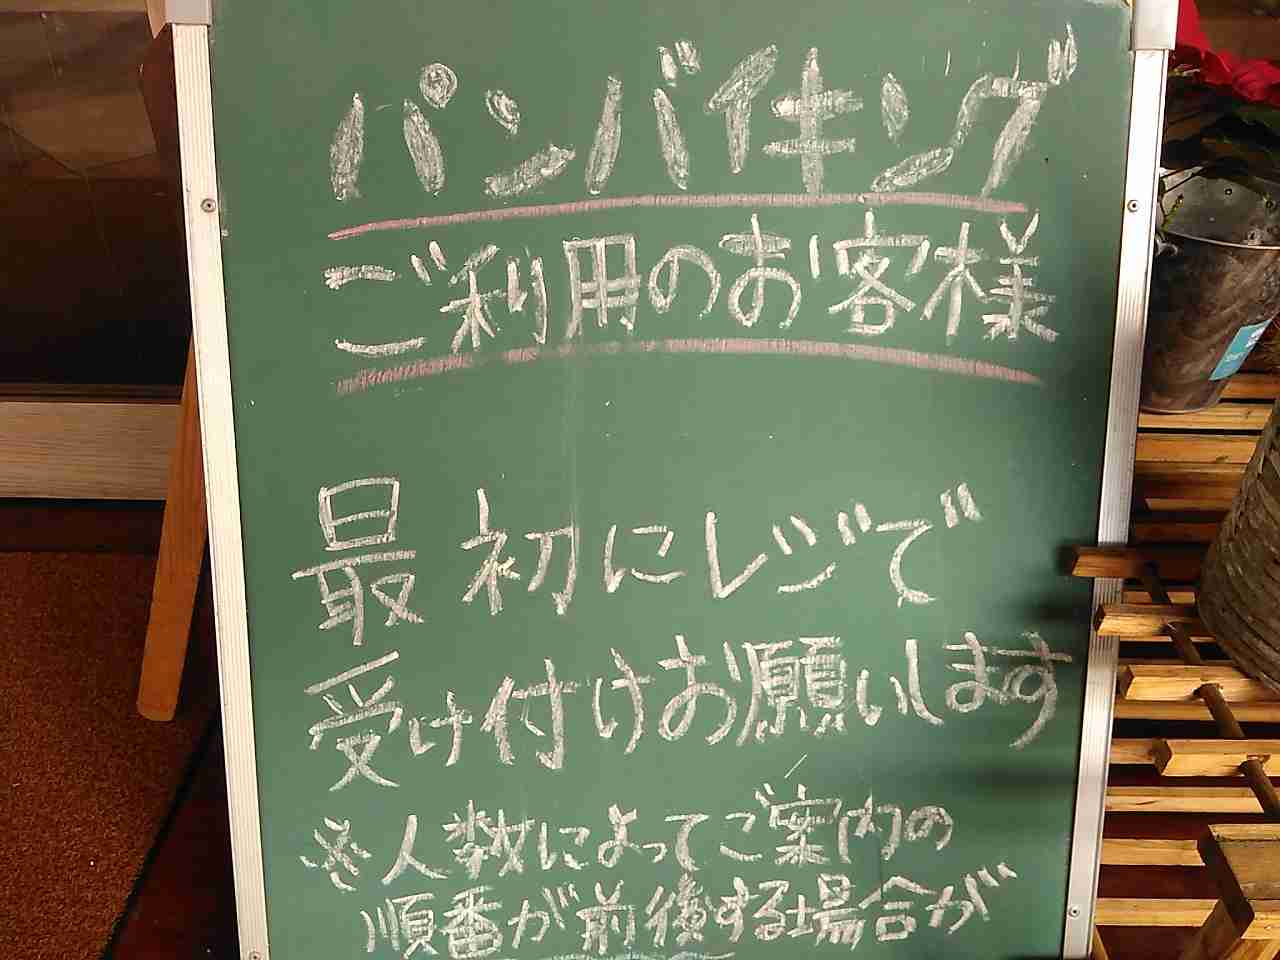 パンバイキング
ご利用のお客様
最初にレジで
受け付けお願いします
※人数によってご案内の
順番が前後する場合が